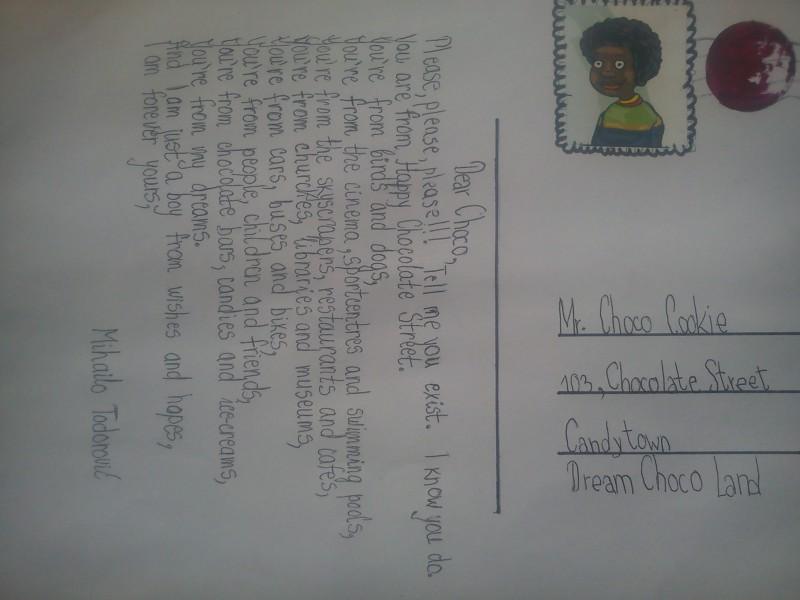 Dear Choco,
Please, please, please!!! Tell me you exist. I know you do.
You are from Happy Chocolate Street.
You're from birds and dogs,
You're from the cinema, sportcentres and swimming pools,
You're from the skyscrapers, restaurants and cafes,
You're from churches, libraries and museums,
You're from cars, buses and bikes,
You're from people, children and friends,
You're from chocolate bars, candies and icecreams,
You're from my dreams.
And I am just a boy from wishes and hopes,
I am forever yours,
Mihailo Todorović
Mr. Choco Cookie
103, Chocolate Street
Candytown
Dream Choco Land